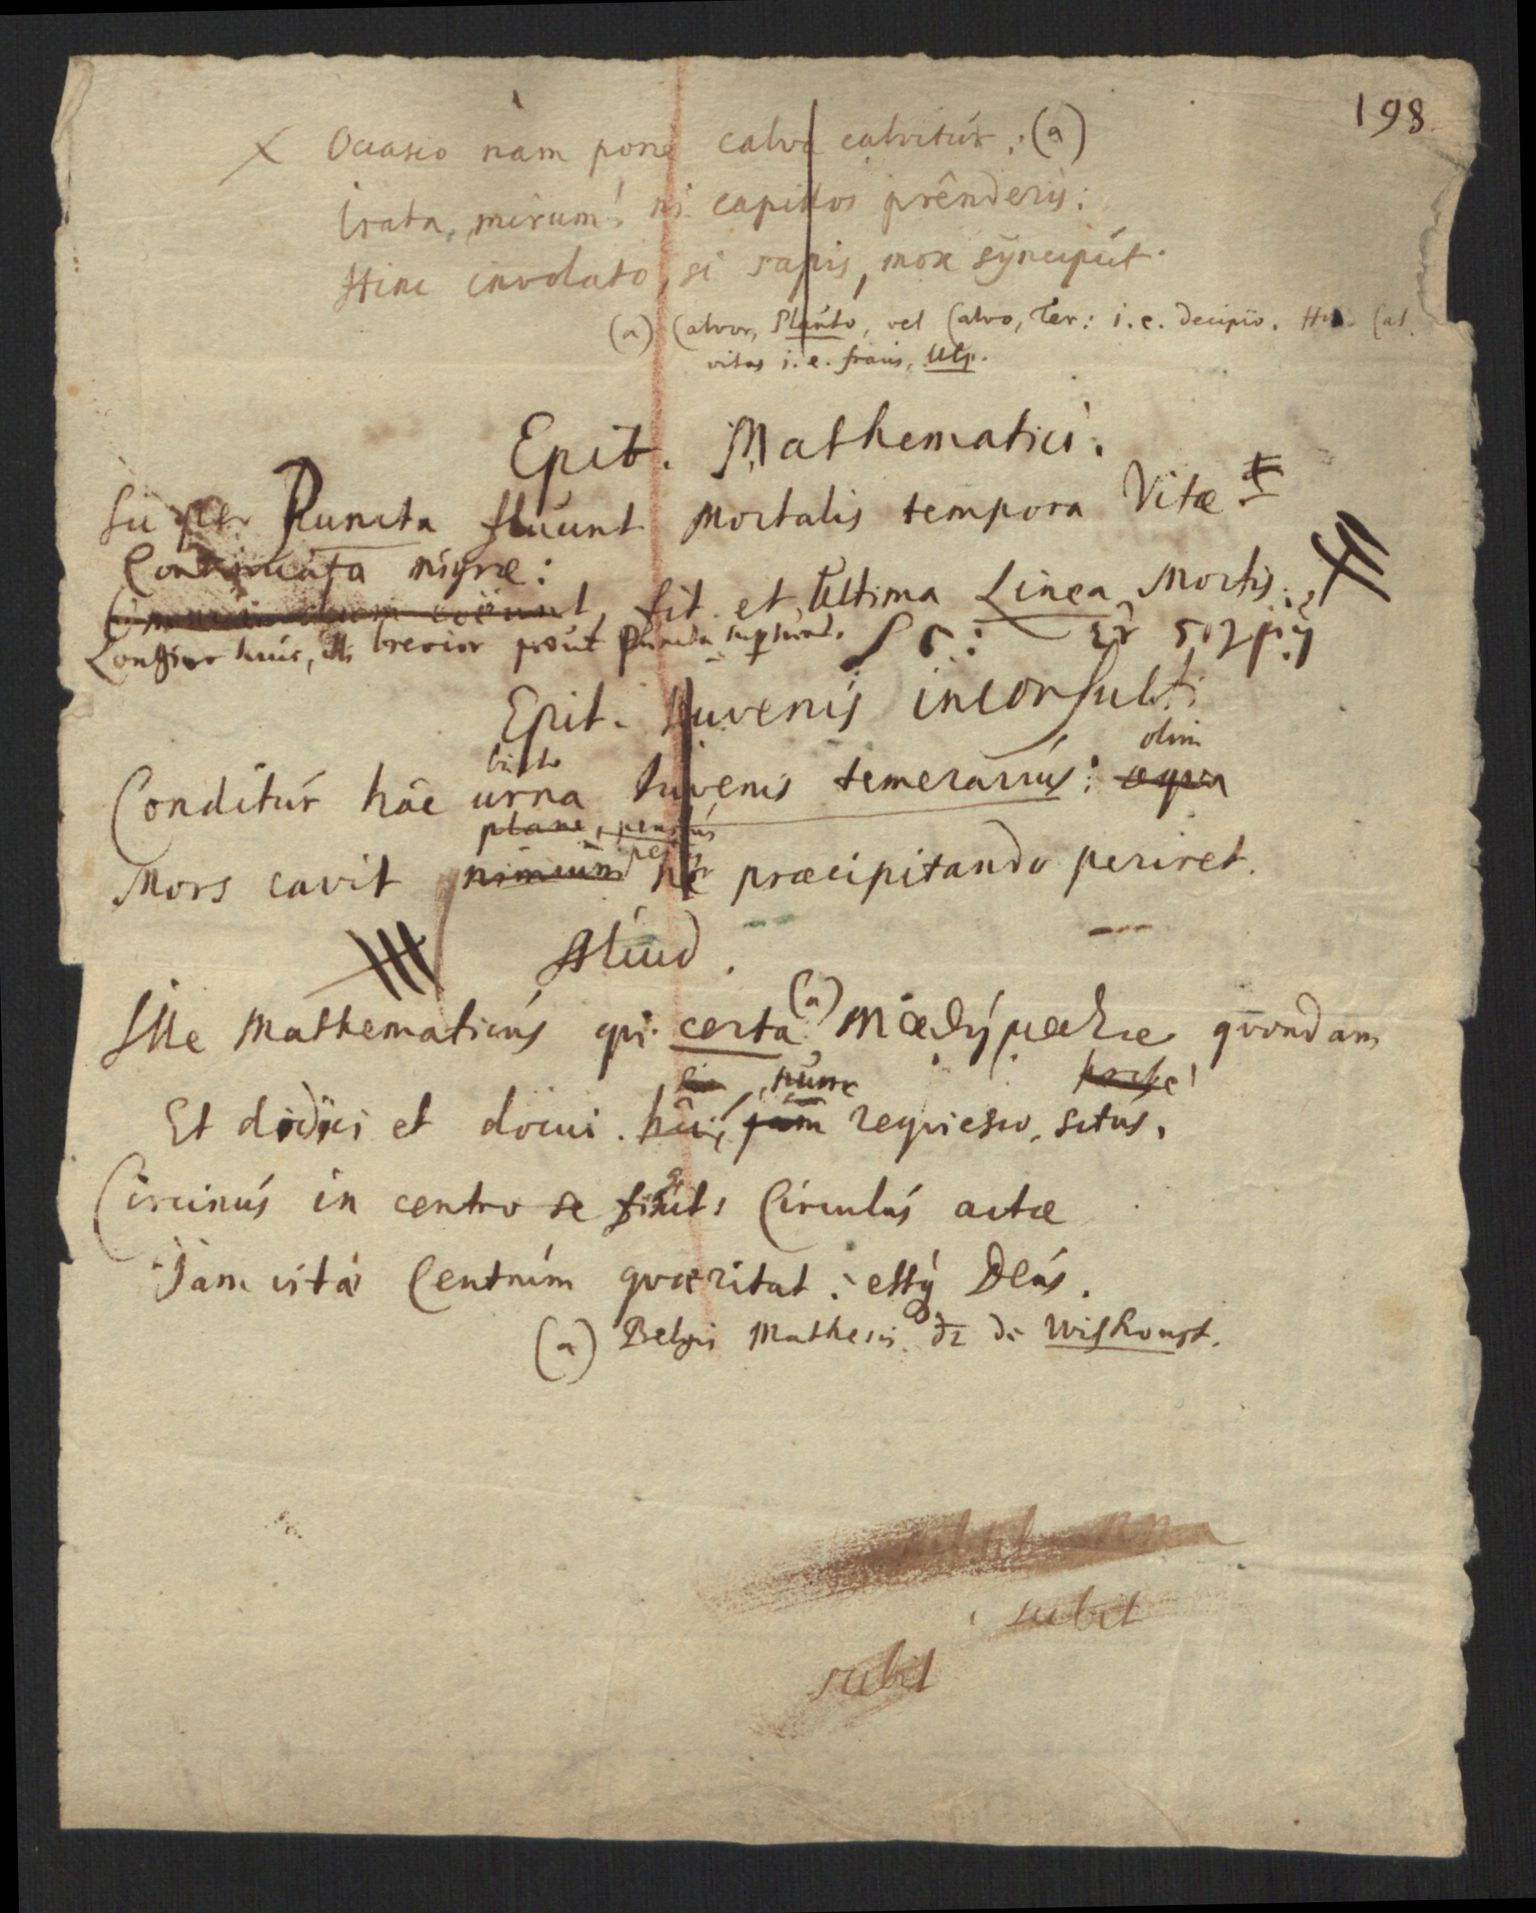 198.
× Occasio nam pone calva calvitúr: (a)
Irata, mirum! ni capillos prênderis:
Hinc involato, si sapis, mox synciput.
(a) Calvor, Plauto, vel Calvo, Ter: i.e. decipio. Hinc Cal
vitas i.e. fraus, Ulp.
Epit. Mathematici.
Super Puncta fluunt mortalis tempora Vitæ
Continuata nigræ:
fit et Ultima Linea Mortis.
Longior huic, illi brevior prout Puncta
Epit. Iuvenis inconsulti
busto olim
Conditúr hâc urna Iuvenis temerariús: æqua
plane, penitús
Mors cavit nimium ne præcipitando periret.
Aliud.
Ille Mathematicús qui certa (a) Μαθήματα qvondam
nunc
Et didici et docui. hîc, jam reqviesco, sitús,
Circinús in centro se sistit: Circulús actæ
Jam vitæ Centrúm qværitat: estq́ Deús.
(a) Belgis Mathesis dr de Wiskonst.
subit
subit